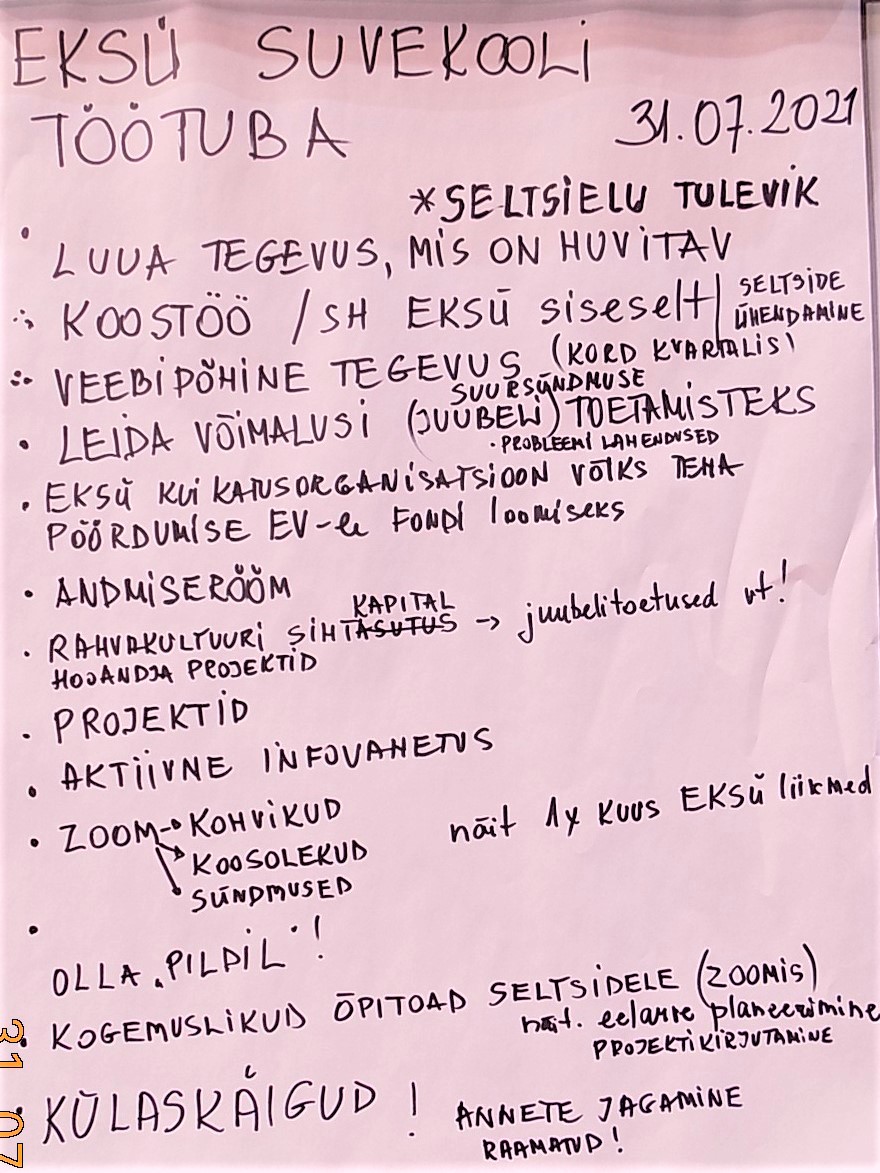 EKSÜ SUVEKOOLI
TÖÖTUBA 31.07.2021
*SELTSIELU TULEVIK
• LUUA TEGEVUS, MIS ON HUVITAV
KOOSTÖÖ / SH EKSÜ siseselt | SELTSIDE
ÜHENDAMINE
VEEBIPÕHINE TEGEVUS (KORD KVARTALIS)
SUURSÜNDMUSE
• LEIDA VÕIMALUSI (JUUBELI) TOETAMISTEKS
• PROBLEEMI LAHENDUSED
• EKSÜ KUI KATUSORGANISATSIOON VÕIKS TEHA
PÖÖRDUMISE EV-le FONDI loomiseks
• ANDMISERÕÕM
KAPITAL
• RAHVAKULTUURI SIHTASUTUS → juubelitoetused vt!
HOOANDJA PROJEKTID
• PROJEKTID
• AKTIIVNE INFOVAHETUS
• ZOOM → KOHVIKUD näit 1x KUUS EKSÜ liikmed
KOOSOLEKUD
SÜNDMUSED
• OLLA „PILDIL"!
• KOGEMUSLIKUD ÕPITOAD SELTSIDELE (ZOOMIS)
näit. eelarve planeerimine
PROJEKTIKIRJUTAMINE
• KÜLASKÄIGUD! ANNETE JAGAMINE
RAAMATUD!
31 07